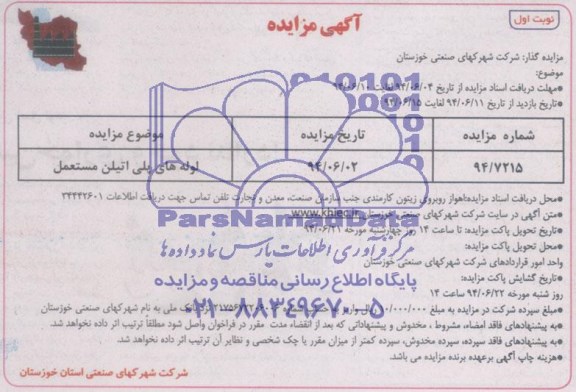 نوبت اول
آگهی مزایده
مزایده گذار: شرکت شهرکهای صنعتی خوزستان
موضوع:
*مهلت دریافت اسناد مزایده از تاریخ ۹۴/۰۶/۰۴ لغایت ۹۴/۰۶/۱۰
*تاریخ بازدید از تاریخ ۹۴/۰۶/۱۱ لغایت ۹۴/۰۶/۱۵
شماره مزایده تاریخ مزایده موضوع مزایده
۹۴/۷۲۱۵ ۹۴/۰۶/۰۲ لوله های پلی اتیلن مستعمل
*محل دریافت اسناد مزایده:اهواز روبروی زیتون کارمندی جنب سازمان صنعت، معدن و تجارت تلفن تماس جهت دریافت اطلاعات ۳۴۴۴۲۶۰۱
*متن آگهی در سایت شرکت شهرکهای صنعتی خوزستان www.khiec.ir
*تاریخ تحویل پاکت مزایده: تا ساعت ۱۴ روز چهارشنبه مورخه ۹۴/۰۶/۲۱
*محل تحویل پاکت مزایده:
واحد امور قراردادهای شرکت شهرکهای صنعتی خوزستان
*تاریخ گشایش پاکت مزایده:
روز شنبه مورخه ۹۴/۰۶/۲۲ ساعت ۱۴
*مبلغ سپرده شرکت در مزایده به مبلغ ریال واریز به ملی به نام شهرکهای صنعتی خوزستان
*به پیشنهادهای فاقد امضاء، مشروط ، مخدوش و پیشنهاداتی که بعد از انقضاء مدت مقرر در فراخوان واصل شود مطلقاً ترتیب اثر داده نخواهد شد.
*به پیشنهادهای فاقد سپرده، سپرده مخدوش، سپرده کمتر از میزان مقرر یا چک شخصی و نظایر آن ترتیب اثر داده نخواهد شد.
*هزینه چاپ آگهی برعهده برنده مزایده می باشد.
شرکت شهرکهای صنعتی استان خوزستان
ParsNamadData
مرکز فرآوری اطلاعات پارس نماد داده ها
پایگاه اطلاع رسانی مناقصه و مزایده
۰۲۱-۸۸۳۴۹۶۷۰-۵